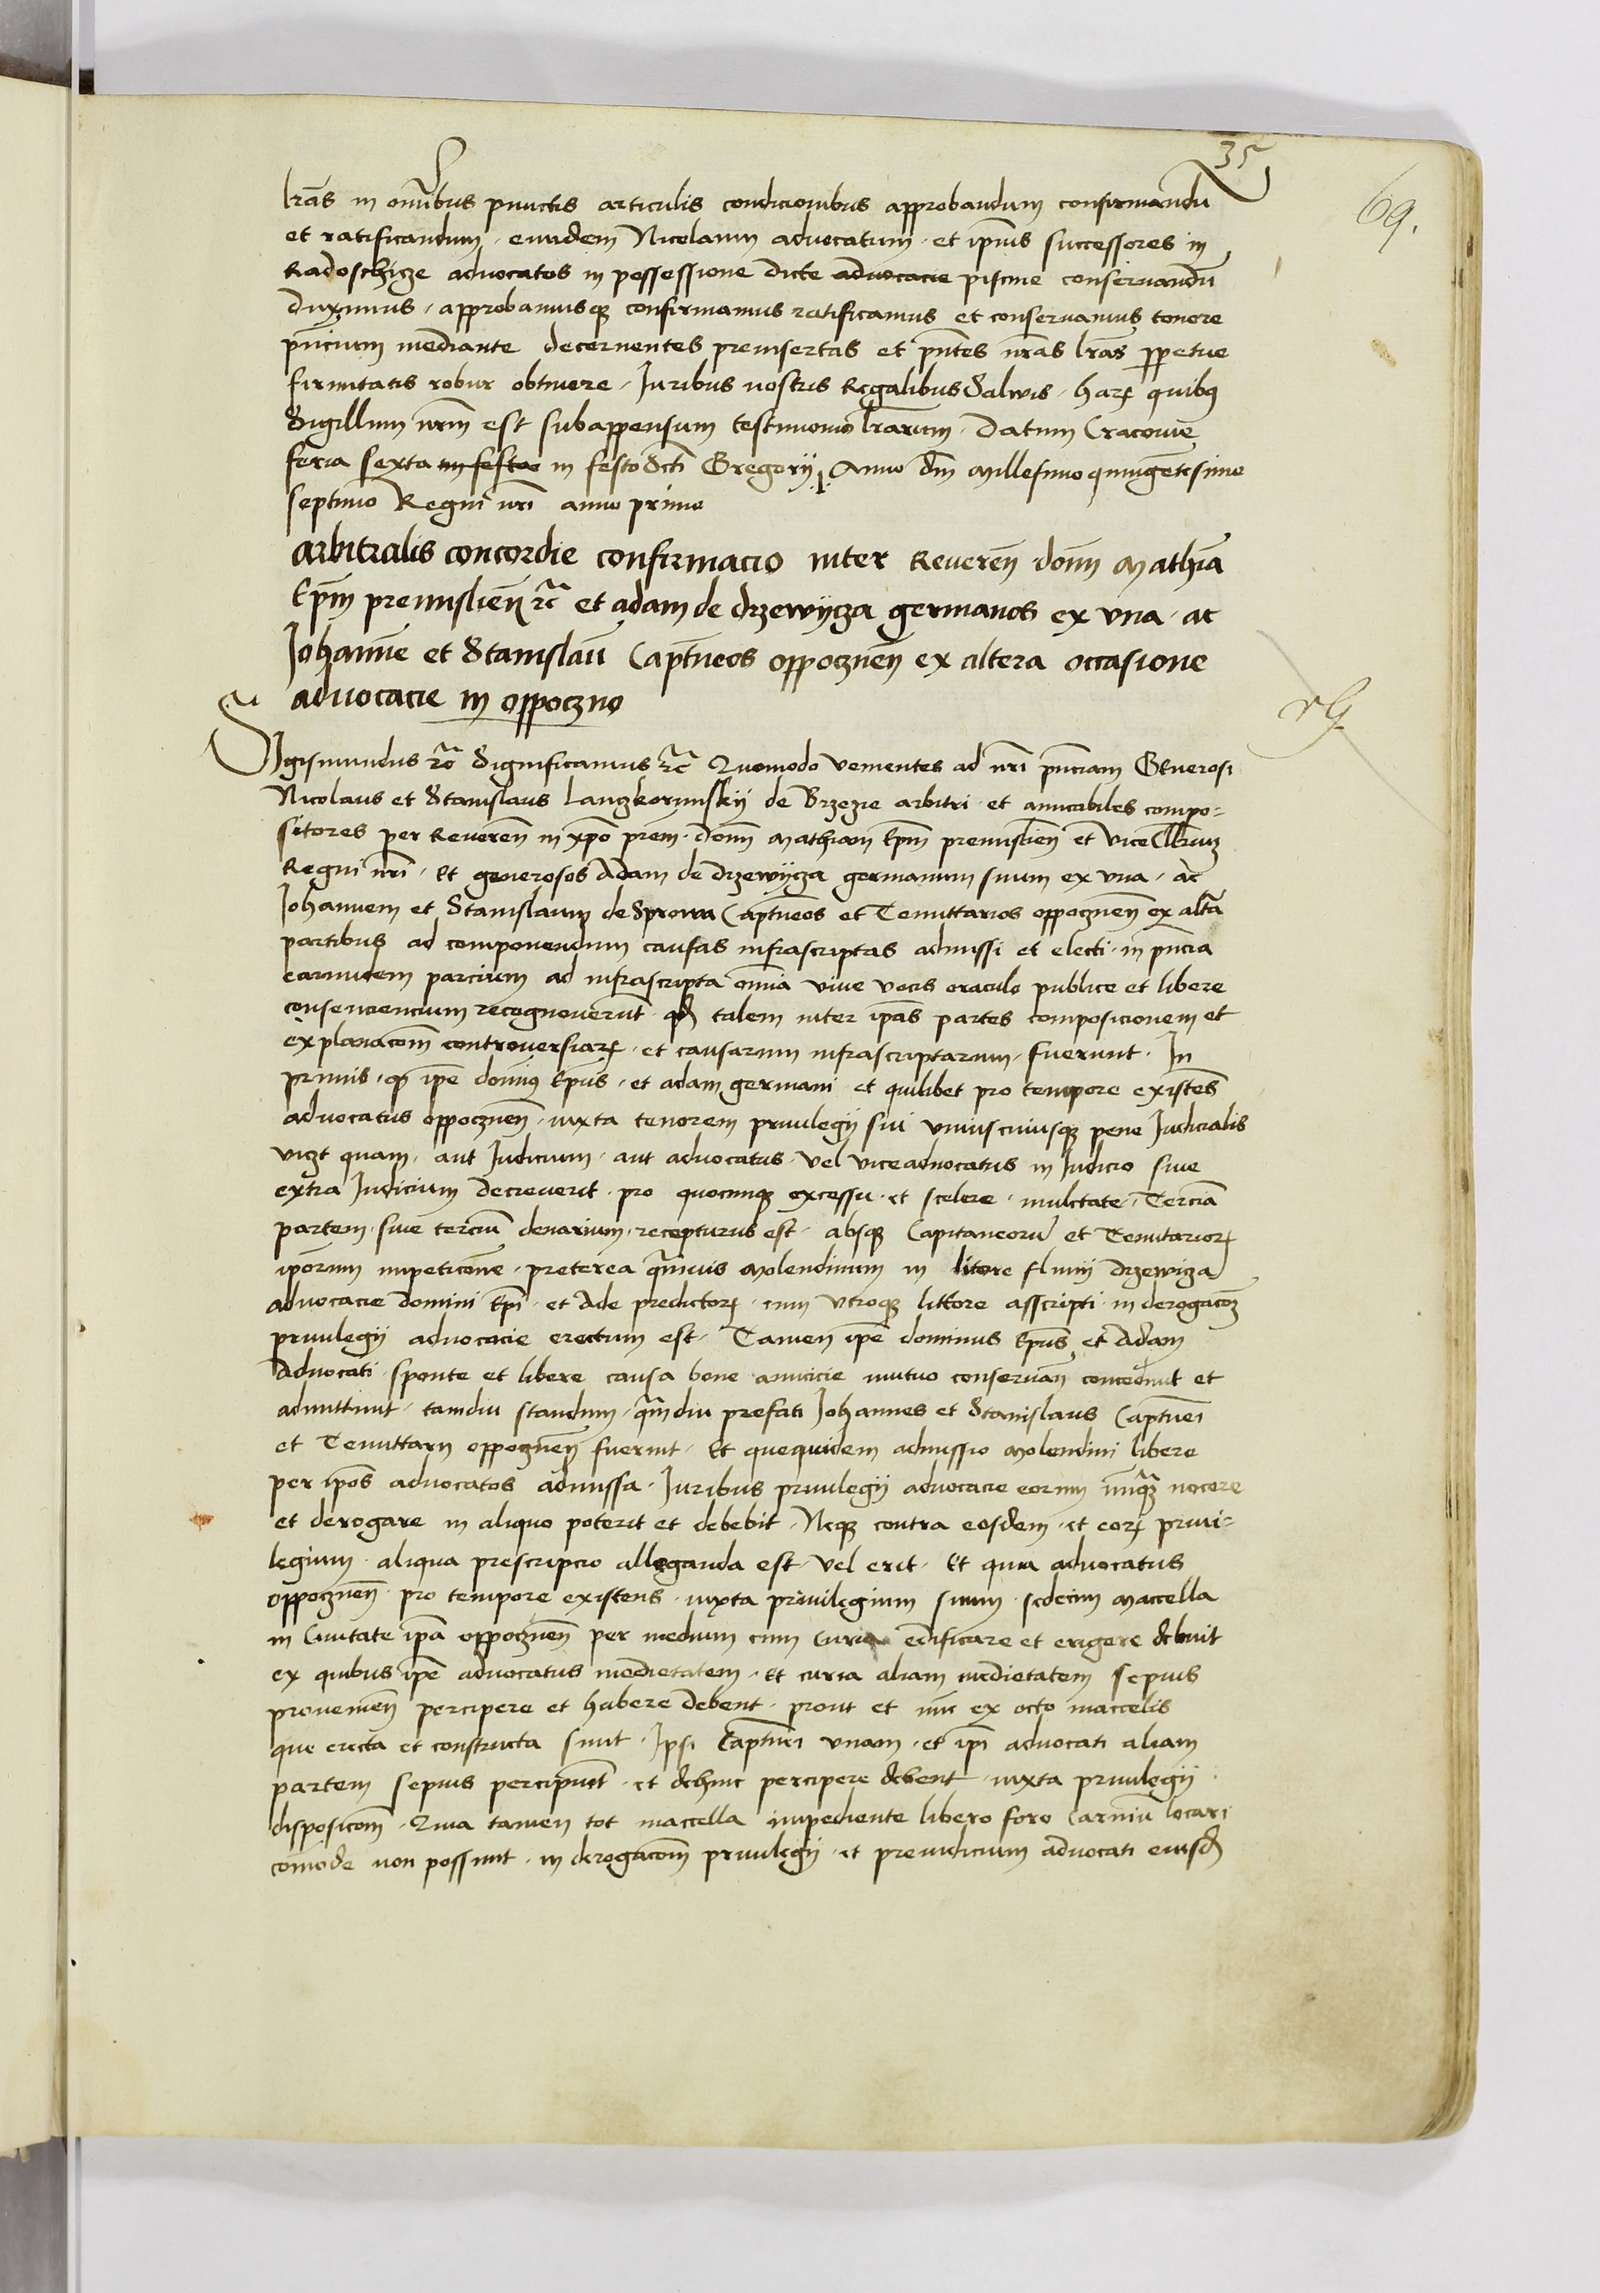 35
69.
lr̄as in om̄ibus punctis articulis condicionibus approbandum confirmandū
et ratificandum, eundem Nicolaum advocatum et ip̄ius successores in
Radoschicze advocatos in possessione dicte advocacie piscine conservandū
duximus, approbamusq confirmamus ratificamus et conservamus tenore
pn̄cium mediante decernentes preinsertas et pn̄tes nr̄as lr̄as ꝑpetue
firmitatis robur obtinere, Iuribus nostris Regalibus Salvis, harꝝ quibus
Sigillum nr̄m est subappensum testimonio lr̄arum. Datum Cracovie
feria sexta in festo in festo Sc̄ti Gregorii Anno dn̄i Millesimo quingentesimo
septimo Regni nr̄i anno primo
Arbitralis concordie confirmacio inter Reveren̄ don̄m Mathiā
Ep̄m premislien̄ ꝛc̄ et adam de drzewycza germanos ex una ac
Johannē et Stanislaū Capt̄neos oppocznen̄ ex altera occasione
advocacie in oppoczno
rG
Sigismundus ꝛc̄ Significamus ꝛc̄ Quomodo venientes ad nr̄i pn̄ciam Generosi
Nicolaus et Stanislaus Lanczkorunskij de Brzezie arbitri et amicabiles compo=
sitores per Reveren̄ in xp̄o pr̄em don̄m Mathiam Ep̄m premislien̄ et vice
Regni nr̄i, Et generosos Adam de drzewycza germanum suum ex una, ac
Johannem et Stanislaum de Sprowa Capt̄neos et Tenuttarios oppocznen̄ ex alt̄a
partibus ad componendum causas infrascriptas admissi et electi in pn̄cia
earundem parcium ad infrascripta om̄ia vive vocis oraculo publice et libere
consenciencium recognoverūt qđ talem inter ip̄as partes composicionem et
explanacōm controversiarꝝ et causarum infrascriptarum fuerunt. In
primis, qđ ip̄e domin̄ Ep̄us, et adam germani et quilibet pro tempore existēs
advocatus oppocznen̄ iuxta tenorem privilegij sui uniuscuiusq pene Iudicialis
vizt quam, aut Iudicium aut advocatus vel viceadvocatus in Iudicio sive
extra Iudicium decreverit pro quocunq excessu et scelere mulctate, Terciā
partem sive terciū denarium recepturus est absq Capitaneorū et Tenutariorꝝ
ip̄orum impeticōne, preterea qm̄vis Molendinum in litore fluvij drzewicza
advocacie domini Ep̄i et Ade predictorꝝ cum utroq littore asscripti in derogacōꝫ
privilegij advocacie erectum est, Tamen ip̄e dominus Ep̄us et Adam
Advocati sponte et libere causa bone amicicie mutuo conservan̄ concedunt et
admittunt tamdiu standum qm̄diu prefati Johannes et Stanislaus Capt̄nei
et Tenuttarij oppocznen̄ fuerint, Et quequidem admissio Molendini libere
per ip̄os advocatos admissa, Iuribus privilegij advocacie eorum nunq̄ nocere
et derogare in aliquo poterit et debebit, Neq contra eosdem et eorꝝ privi=
legium aliqua prescripcio alleganda est vel erit. Et quia advocatus
oppocznen̄ pro tempore existens iuxta privilegium suum sedecim Maccella
in Civitate ip̄a oppocznen̄ per medium cum Curia edificare et erigere debuit
ex quibus ip̄e advocatus medietatem, Et curia aliam medietatem sepius
provenien̄ percipere et habere debent prout et nūc ex octo maccelis
que erecta et constructa sunt Ipsi Capt̄nei unam et ip̄i advocati aliam
partem sepius percipiunt et dehinc percipere debent iuxta privilegij
disposicōm, Quia tamen tot maccella impediente libero foro Carniū locari
comode non possunt in derogacōm privilegij et preiudicium advocati eiusđ